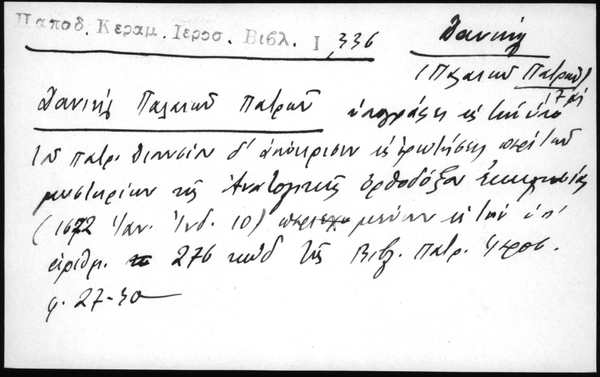 Παποδ. Κεραμ. Ιεροσ. Βιβλ. Ι, 336
Δανιήλ
(Παλαιῶν Πατρῶν)
17 αἰ
Δανιὴλ Παλαιῶν Πατρῶν ὑπογράφει εἰς τὴν ὑπὸ
τοῦ πατρ. Διονυσίου δ' ἀπόκρισιν εἰς ἐρωτήσεις περὶ τῶν
μυστηρίων τῆς Ἀνατολικῆς Ὀρθοδόξου Ἐκκλησίας
(1672 Ἰαν. Ἰνδ. 10) περιεχομένην εἰς τὸν ὑπ'
ἀριθμ. 276 κώδ τῆς Βιβλ. Πατρ. Ἱεροσ.
φ. 27-30